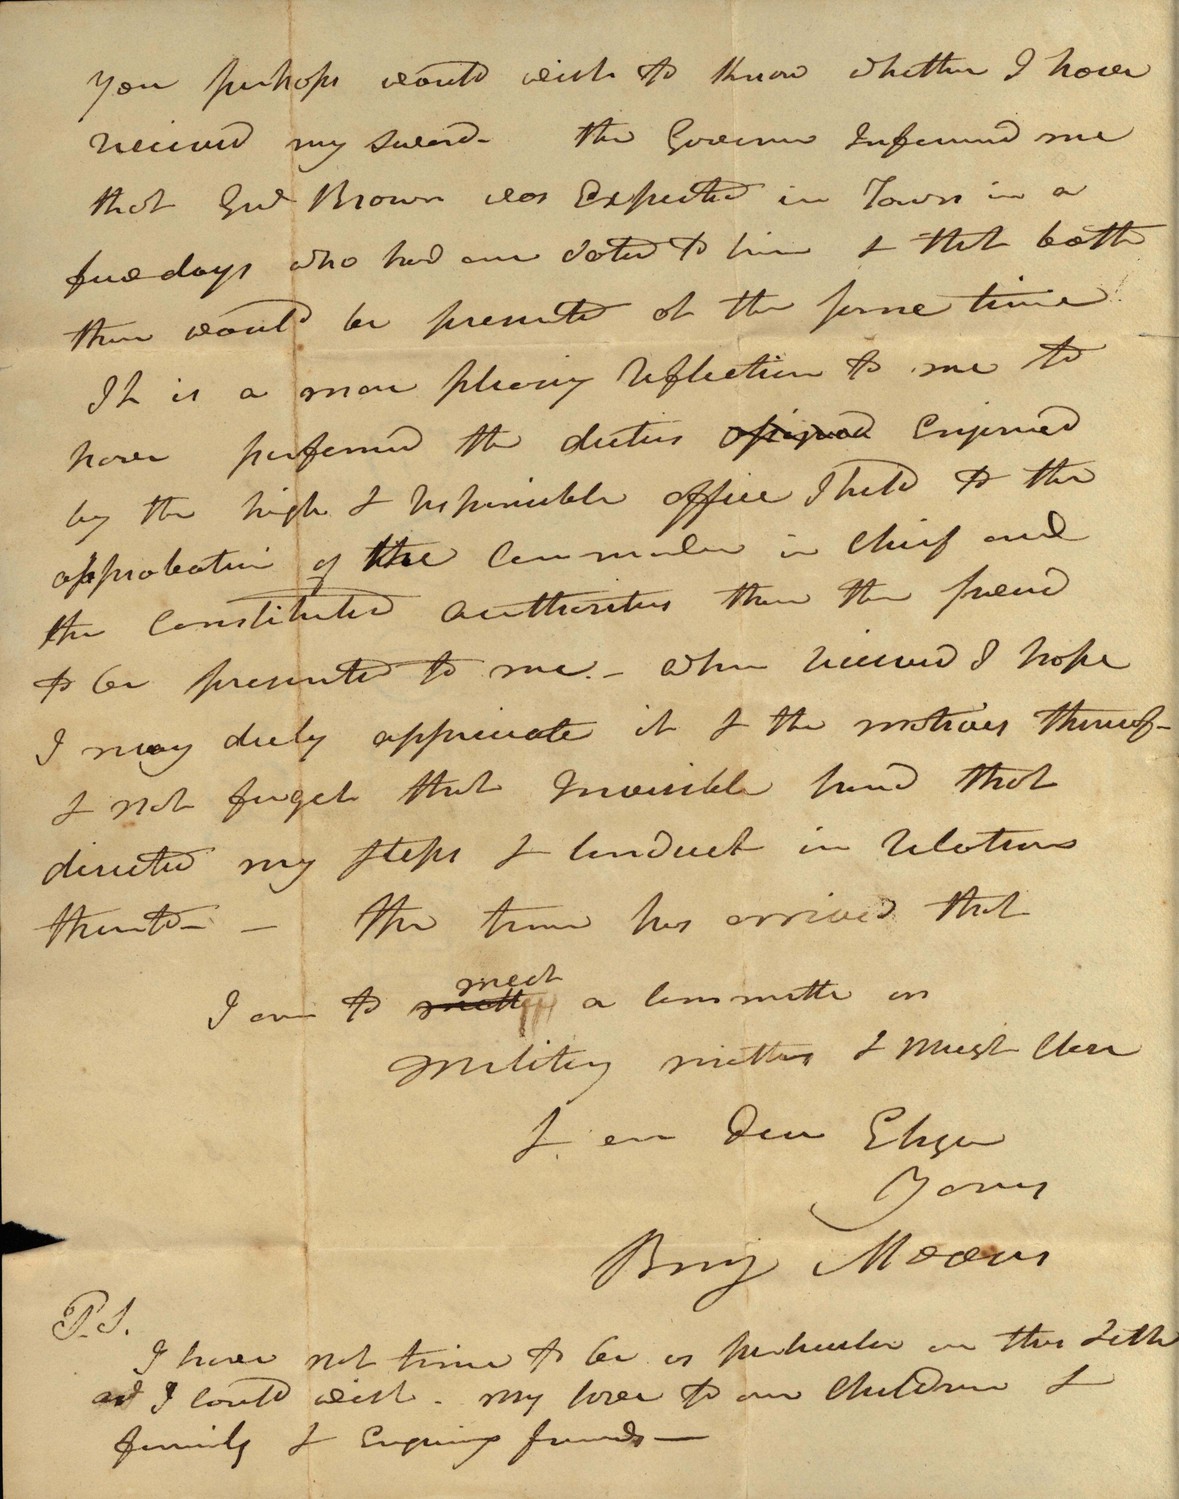 You perhaps would wish to know whether I have
received my sword - the Governor Informed me
that Genl Brown was Expected in Town in a
few days who had one voted to him & that both
then would be presented at the same time
It is a more pleasing reflection to me to
have performed the duties assigned Enjoined
by the high & responsible office I held to the
approbation of the Commander in Chief and
the Constituted authorities than the sword
to be presented to me. - when received I hope
I may duly appreciate it & the motives thereof -
& not forget that Invisible hand that
directed my steps & conduct in relation
thereto - - the time has arrived that
I am to meet a committe on
military matters & must close
I am Dear Eliza
Yours
Benj Mooers
P.S.
I have not time to be as particular in this Letter
as I could wish - my love to our children &
family & Enquiring friends -